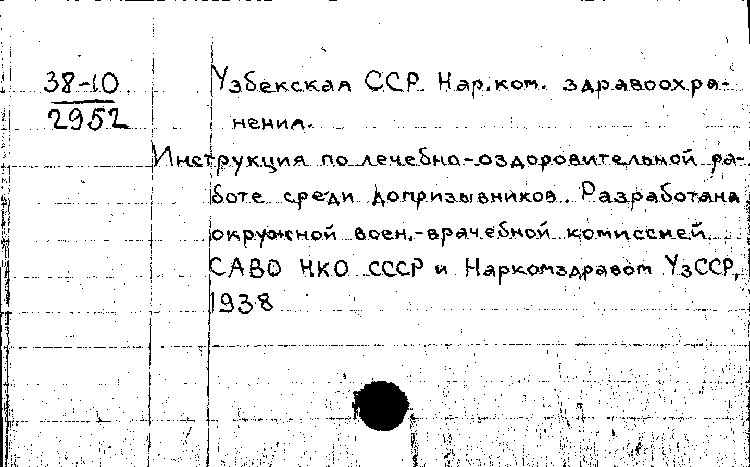 38-10
2952
Узбекская ССР. Нар.ком. здравоохра-
нения.
Инструкция по лечебно-оздоровительной ра-
боте среди допризывников. Разработана
окружной воен.-врачебной комиссией
САВО НКО СССР и Наркомздравом УзССР,
1938